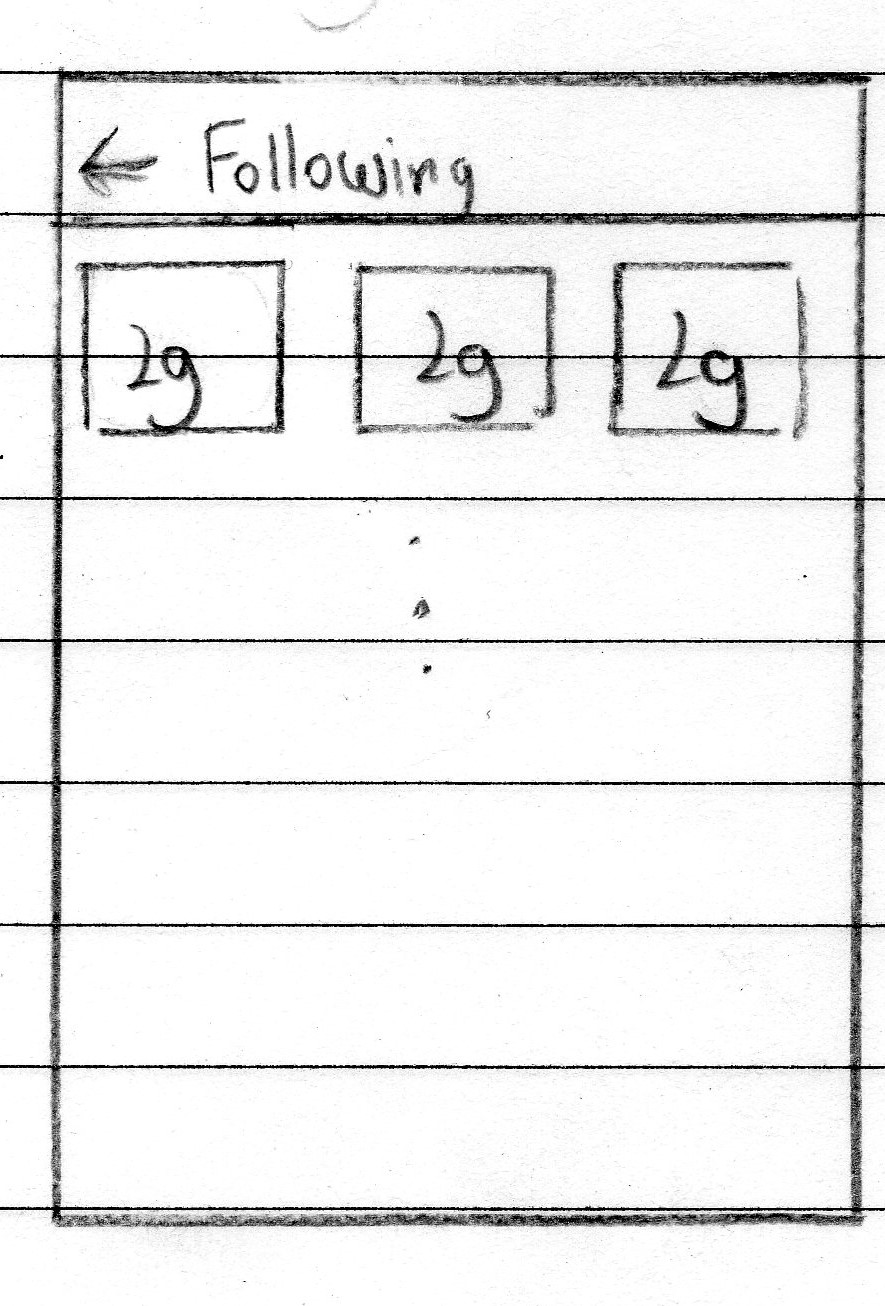 ← Following
2g 2g 2g